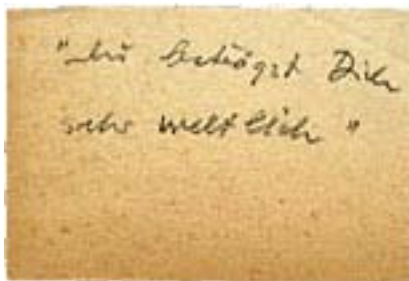 "Du beträgst Dich
sehr weltlich"